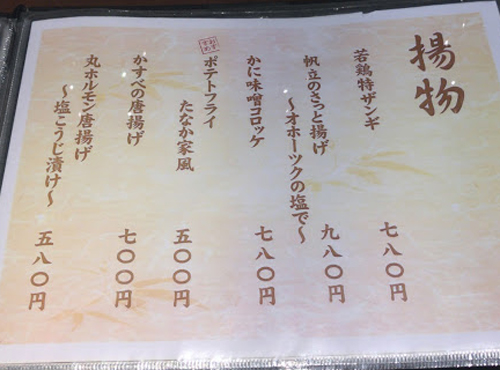 揚物
若鶏特ザンギ
七八〇円
帆立のさっと揚げ
〜オホーツクの塩で〜
九八〇円
かに味噌コロッケ
七八〇円
おすすめ
ポテトフライ
たなか家風
五〇〇円
かすべの唐揚げ
七〇〇円
丸ホルモン唐揚げ
〜塩こうじ漬け〜
五八〇円